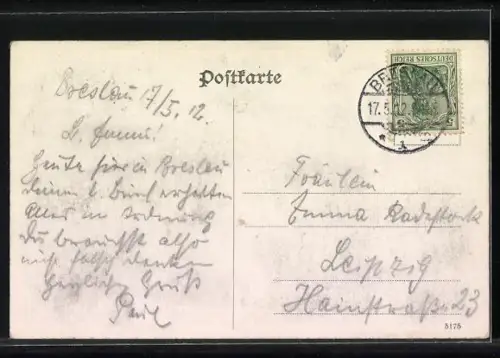 Postkarte
DEUTSCHES REICH
BRESLAU
17.5.12
1
Breslau 17/5. 12.
L. Emma!
Heute hier in Breslau
deinen l. Brief erhalten
Alles in Ordnung
Du brauchst also
nicht falsch denken
herzlichen Gruß
Paul
Fräulein
Emma Radestock
Leipzig
Hainstraße 23
5175